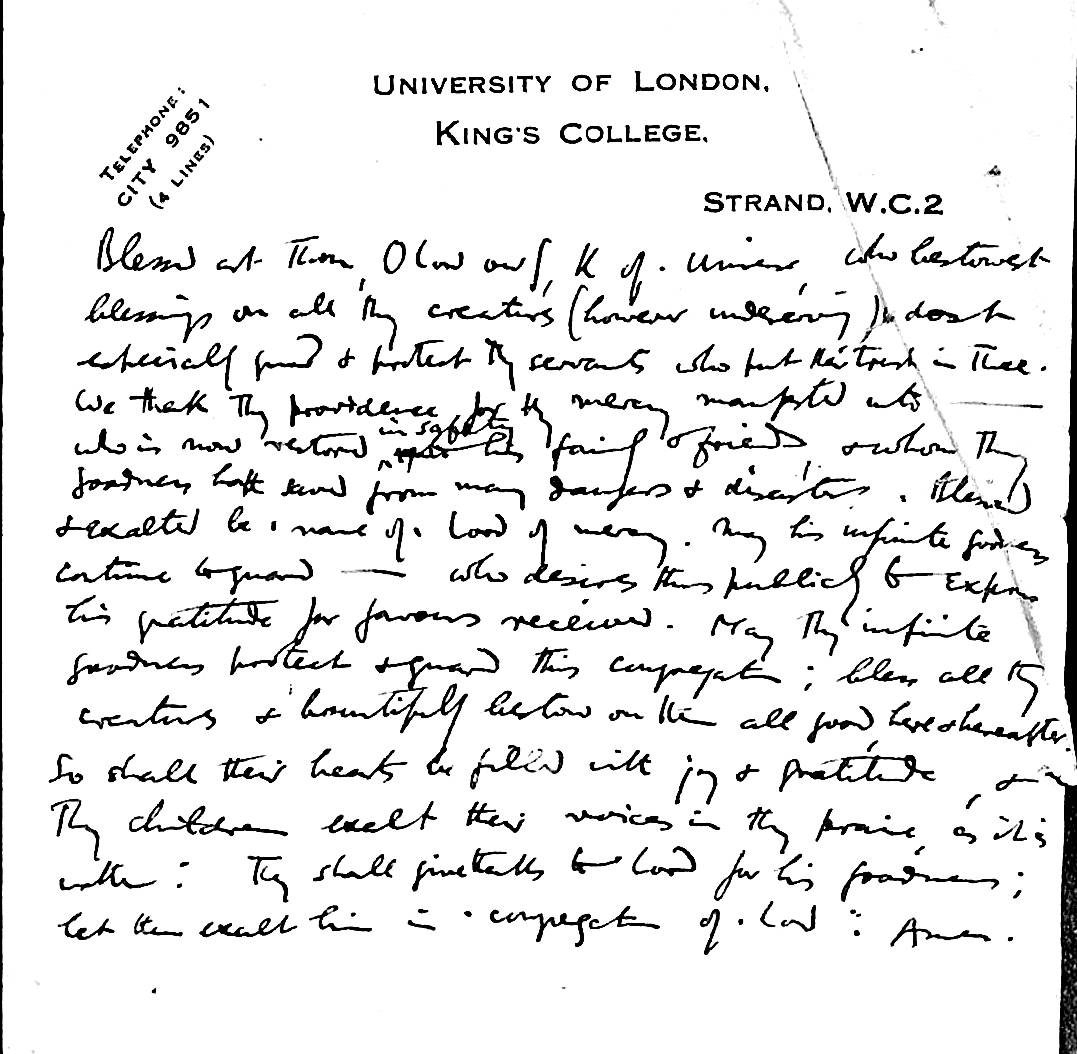 UNIVERSITY OF LONDON.
KING'S COLLEGE.
TELEPHONE:
CITY 9851
(4 LINES)
STRAND, W.C.2
Blessed art Thou, O Lord our G, K of . Universe, who bestowest
blessings on all Thy creatures (however undeserving) & dost
especially guard & protect Thy servants who put their trust in Thee.
We thank Thy providence for thy mercy manifested unto ———
who is now restored in safety his family & friends, & whom Thy
goodness hath saved from many dangers & disasters. Blessed
& exalted be . name of . Lord of mercy. May his infinite goodness
continue to guard — who desires thus publicly to express
his gratitude for favours received. May Thy infinite
goodness protect & guard this congregation; bless all Thy
creatures & bountifully bestow on them all good, here & hereafter.
So shall their hearts be filled with joy & gratitude, &
Thy children exalt their voices in thy praise, as it is
written: They shall give thanks to Lord for his goodness;
let them exalt him in . congregation of . Lord : Amen.